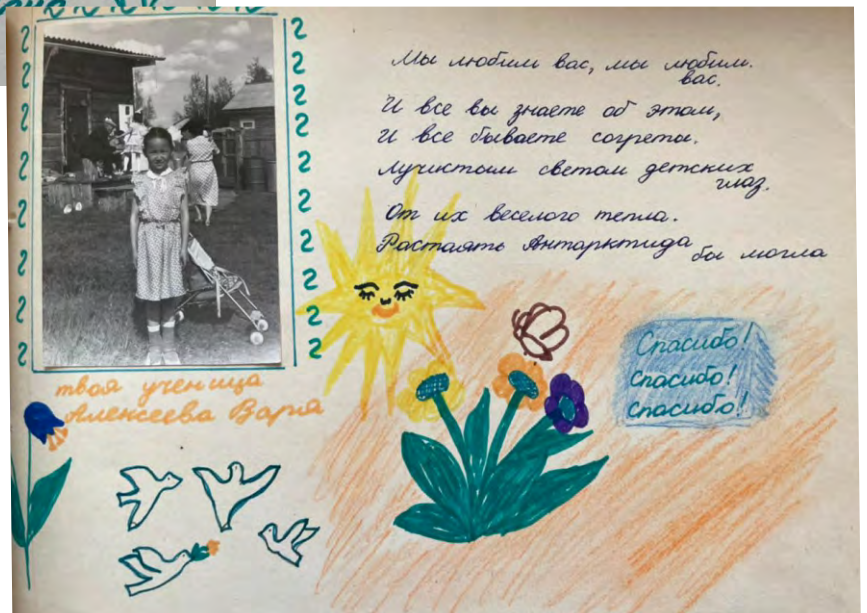 Мы любим вас, мы любим
вас.
И все вы знаете об этом,
И все бываете согреты.
Лучистым светом детских
глаз.
От их веселого тепла.
Растаять Антарктида бы могла
твоя ученица
Алексеева Варя
Спасибо!
Спасибо!
Спасибо!